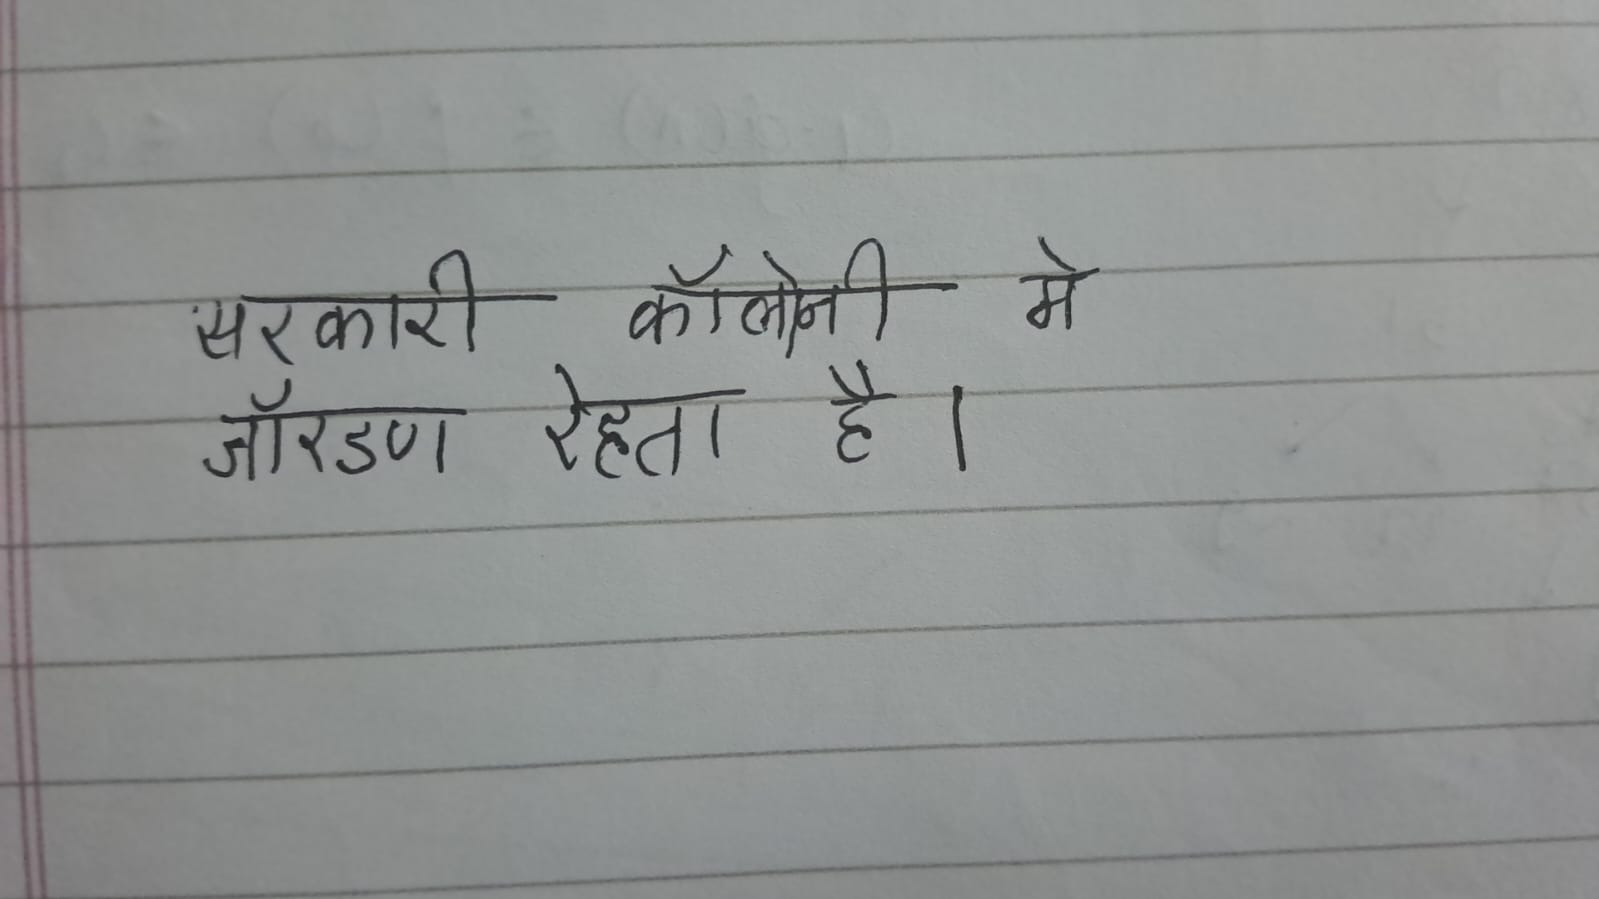 सरकारी कॉलोनी मे
जॉरडण रेहता है।